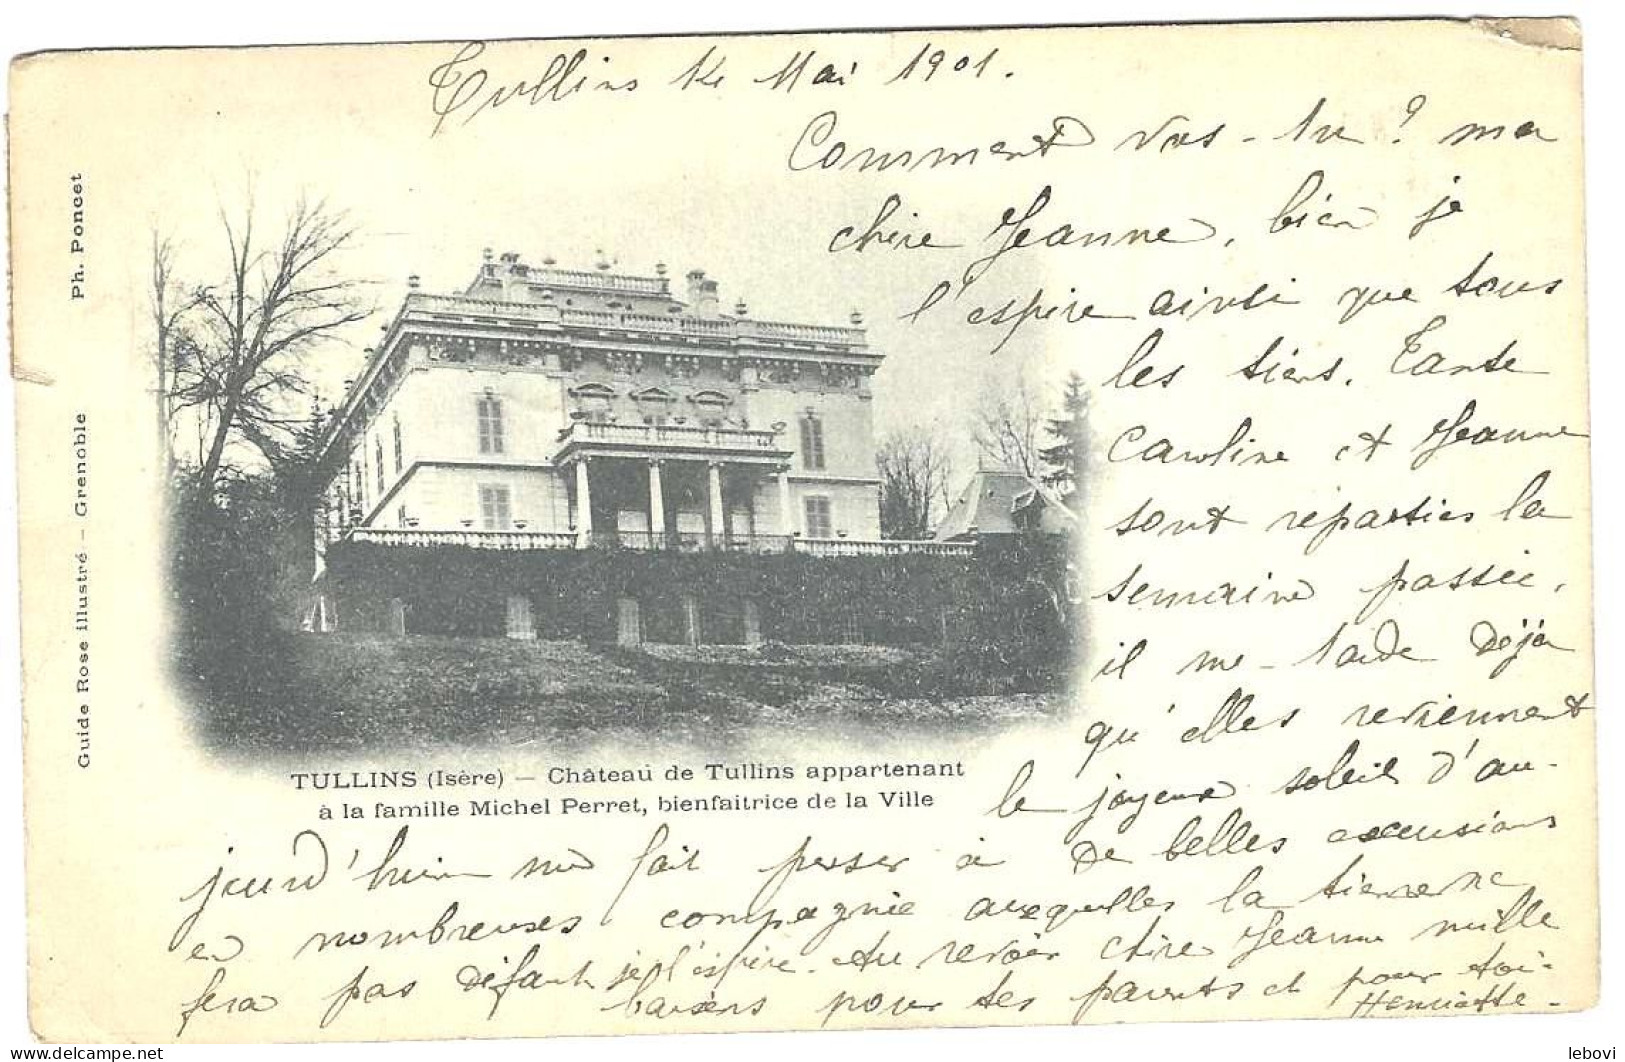 Tullins le Mai 1901.
Comment vas-tu ? ma
chère Jeanne, bien je
l'espère ainsi que tous
les tiens. Tante
Caroline et Jeanne
sont reparties la
semaine passée,
il me tarde déjà
qu'elles reviennent
le joyeux soleil d'au-
jourd'hui me fait penser à de belles excursions
en nombreuses compagnie auxquelles la tienne ne
fera pas défaut je l'espère. Au revoir chère Jeanne mille
baisers pour tes parents et pour toi.
Henriette.
TULLINS (Isère) — Château de Tullins appartenant
à la famille Michel Perret, bienfaitrice de la Ville
Guide Rose illustré — Grenoble Ph. Poncet
lebovi